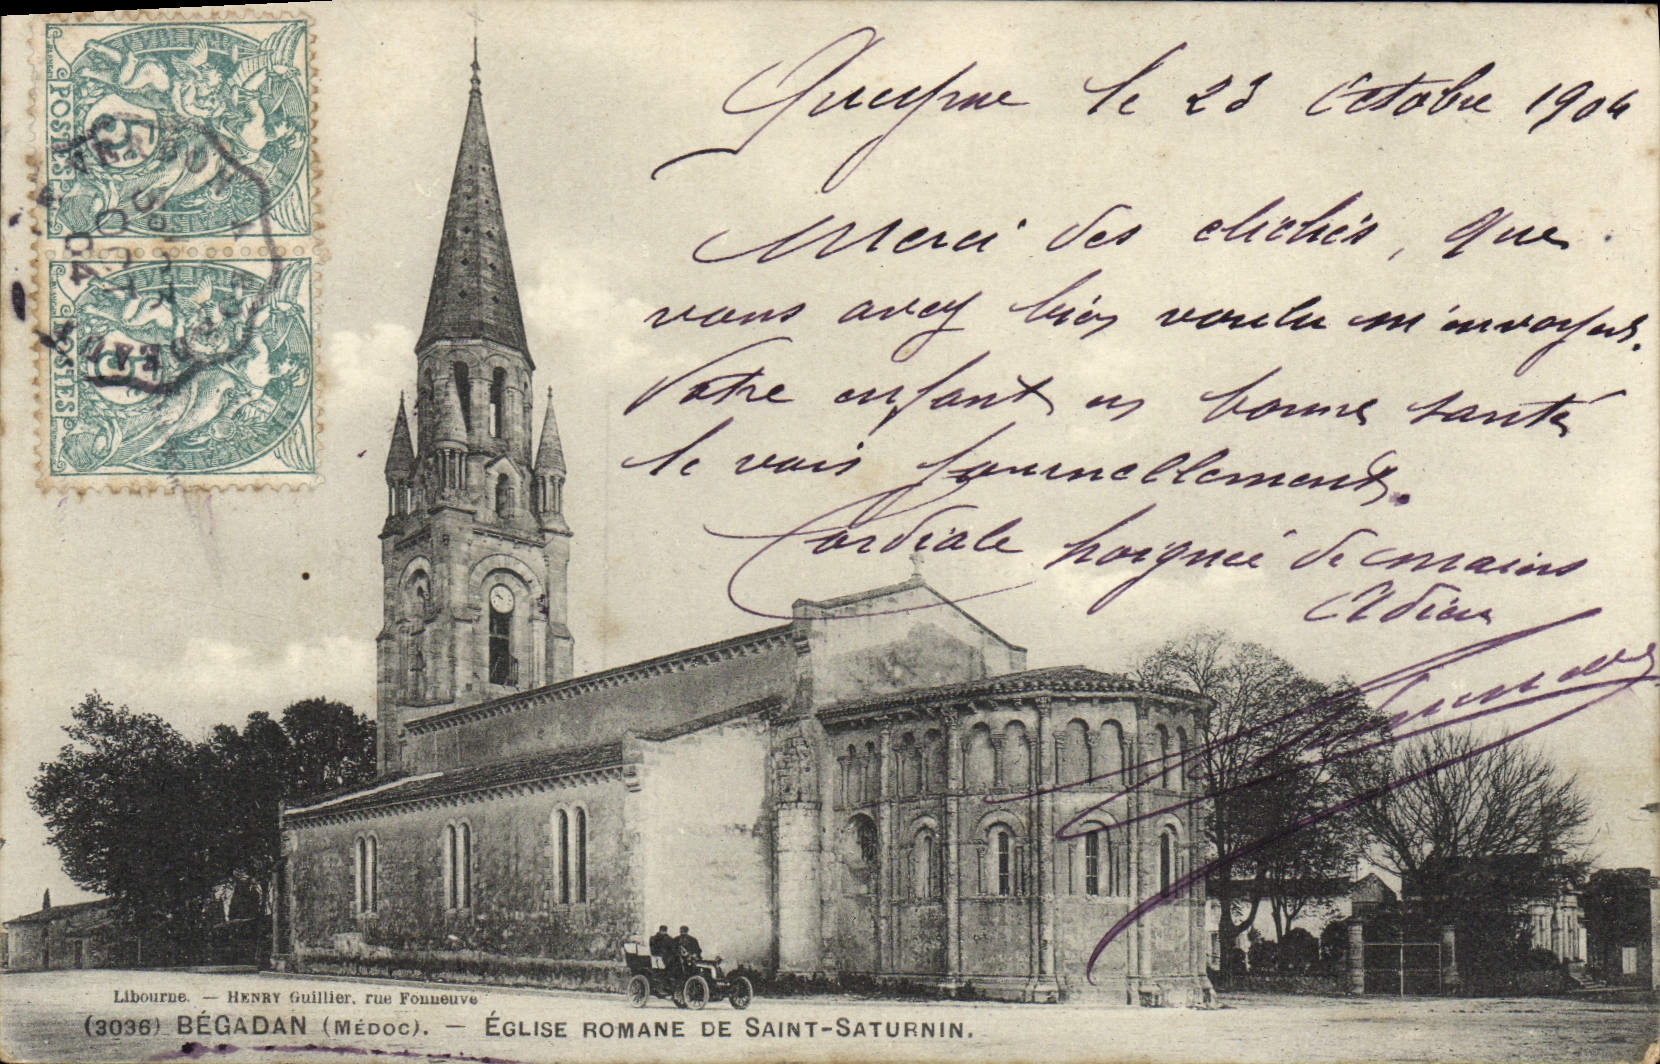 Queyrac le 23 Octobre 1904
Merci des clichés, que
vous avez bien voulu m'envoyer.
Votre enfant en bonne santé
le vois journellement.
Cordiale poignée de mains
Adieu
POSTES 5
POSTES 5
VERDON A
OCT
04
Libourne. — HENRY Guillier, rue Fonneuve
(3036) BÉGADAN (MÉDOC). — ÉGLISE ROMANE DE SAINT-SATURNIN.